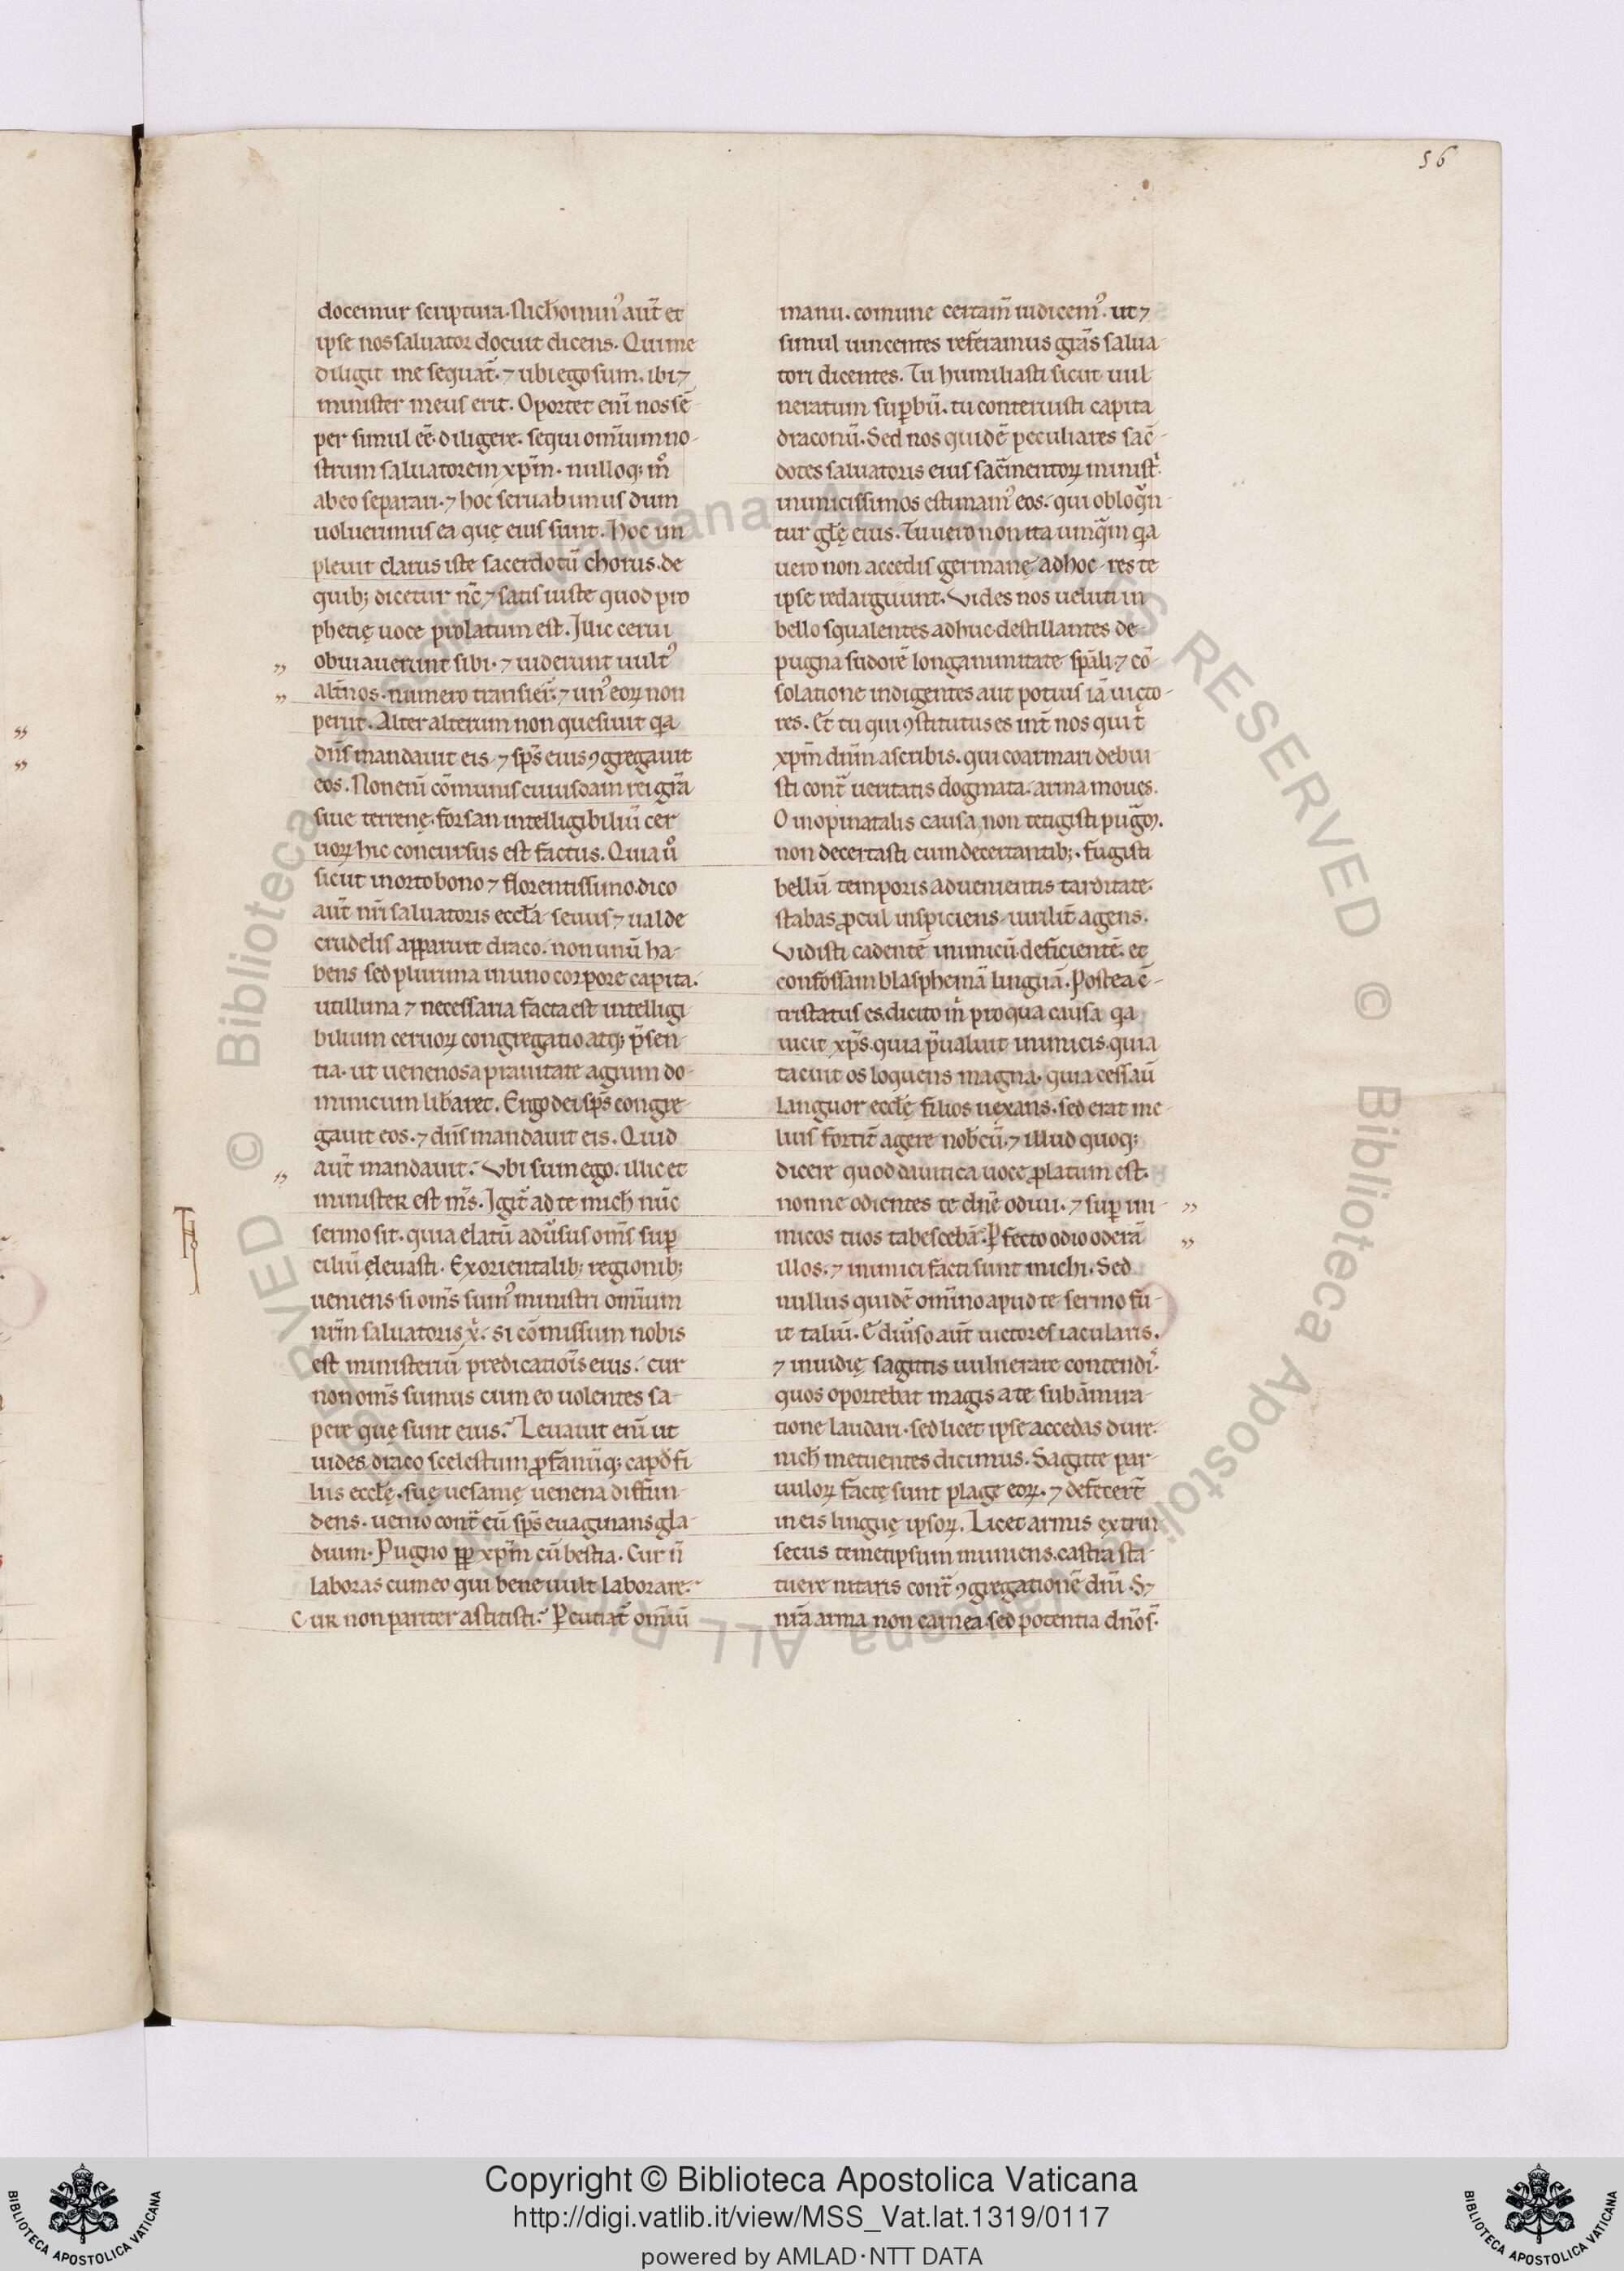 56
docemur scriptura. Nichomin᾿ aut̃ et
ipse nos saluator docuit dicens. Qui me
diligit me sequat̃. ⁊ ubi ego sum. ibi ⁊
minister meus erit. Oportet eni᷑ nos sē-
per simul eē. diligere. sequi omnium no-
strum saluatorem xp̃m. nulloq; mͦ
ab eo separari. ⁊ hoc seruabimus dum
uoluerimus ea quę eius sunt. Hoc im
pleuit clarus iste sacerdotū chorus. de
quib; dicetur nc̄ ⁊ satis iuste quod pro
phetię uoce prolatum est. Illic cerui
obuiauerunt sibi. ⁊ uiderunt uult᾿
alt̃nos. numero transier̃. ⁊ un᾿ eoꝝ non
periit. Alter alterum non quesiuit qa
dn̄s mandauit eis. ⁊ sp̃s eius ꝯgregauit
eos. Non eni᷑ cōmunis cuiusdam rei gr̃a
siue terrenę. forsan intelligibiliū cer
uoꝝ hic concursus est factus. Quia uͦ
sicut in orto bono ⁊ florentissimo. dico
aut̃ nr̃i saluatoris eccła seuus ⁊ ualde
crudelis apparuit draco. non unū ha-
bens sed plurima in uno corpore capita.
utillima ⁊ necessaria facta est intelligi
bilium ceruoꝝ congregatio atq; p̃sen-
tia. ut uenenosa prauitate agrum do-
minicum lib̃aret. Ergo dei sp̃s congre-
gauit eos. ⁊ dn̄s mandauit eis. Quid
aut̃ mandauit. Vbi sum ego. illic et
minister est m̃s. Igit̃ ad te mich̃ nūc
sermo sit. quia elatū adũsus om̃s sup̱
ciliū eleuasti. Ex orientalib; regionib;
ueniens si om̃s sum᾿ ministri omium
nr̃m saluatoris x̃. si cōmissum nobis
est ministeriū predicatiōis eius. cur
non om̃s sumus cum eo uolentes sa-
pere quę sunt eius. Leuauit eni᷑ ut
uides draco scelestum ꝓfanūq; cap̃ d̃ fi
lius eccłę. suę uesanię uenena diffun-
dens. uenio cont̃ eū sp̃s euaginans gla-
dium. Pugno ꝓp̃ xp̃m cū bestia. Cur ñ
laboras cum eo qui bene uult laborare.
Cur non pariter astitisti. Ꝑcutiat̃ omiū
manu. comune certam̃ iudicem᾿. ut ⁊
simul uincentes referamus gr̃as salua-
tori dicentes. Tu humiliasti sicut uul
neratum suꝑbū. tu conteruisti capita
draconū. Sed nos quidē peculiares sac̄-
dotes saluatoris eius sac̃mentoꝝ minist̃.
inimicissimos estimam᾿ eos. qui obloq̃n-
tur gl̃ę eius. Tu uero non ita umq̃m qa
uero non accedis germanę ad hoc res te
ipse redarguunt. Vides nos uelut in
bello squalentes adhuc. destillantes de
pugna sudorē longanimitate sp̃ali. ⁊ cō-
solatione indigentes aut potius iā uicto-
res. Et tu qui ꝯstitutus es int̃ nos qui t̃
xp̃m dn̄m ascribis. qui coarmari debui-
sti cont̃ ueritatis dogmata. arma moues.
O inopinatalis causa, non tetigisti pugᷓ.
non decertasti cum decertantib;. fugisti
bellū temporis aduenientis tarditate.
stabas ꝓcul inspiciens. uirilit̃ agens.
Vidisti cadentē inimicū. deficientē. et
confossam blasphemā linguā. Postea c̄-
tristatus es. dicito m̃ pro qua causa. qa
uicit xp̃s. quia p̃ualuit inimicis. quia
tacuit os loquens magna. quia cessaũ
languor eccłę filios uexans. sed erat me-
lius fortit̃ agere nob̃cū. ⁊ illud quoq;
dicere quod dauitica uoce ꝓlatum est.
nonne odientes te dn̄e odiui. ⁊ suꝑ ini-
micos tuos tabescebā. Ꝑfecto odio oderā
illos. ⁊ inimici facti sunt michi. Sed
nullus quidē omīno apud te sermo fu-
it taliū. E diũso aut̃ uictores iacularis.
⁊ inuidię sagittis uulnerare contendi̾.
quos oportebat magis a te sub āmira-
tione laudari. sed licet ipse accedas dure.
nich̃ metuentes dicimus. Sagitte par-
uuloꝝ factę sunt plage eoꝝ. ⁊ defecer̃t
in eis linguę ipsoꝝ. Licet armis extrin
secus temetipsum muniens. castra sta-
tuere nitaris cont̃ ꝯgregationē dn̄i. S⁊
nr̃a arma non carnea. sed potentia dn̄o s̃.
Copyright © Biblioteca Apostolica Vaticana
http://digi.vatlib.it/view/MSS_Vat.lat.1319/0117
powered by AMLAD·NTT DATA
BIBLIOTECA APOSTOLICA VATICANA
BIBLIOTECA APOSTOLICA VATICANA